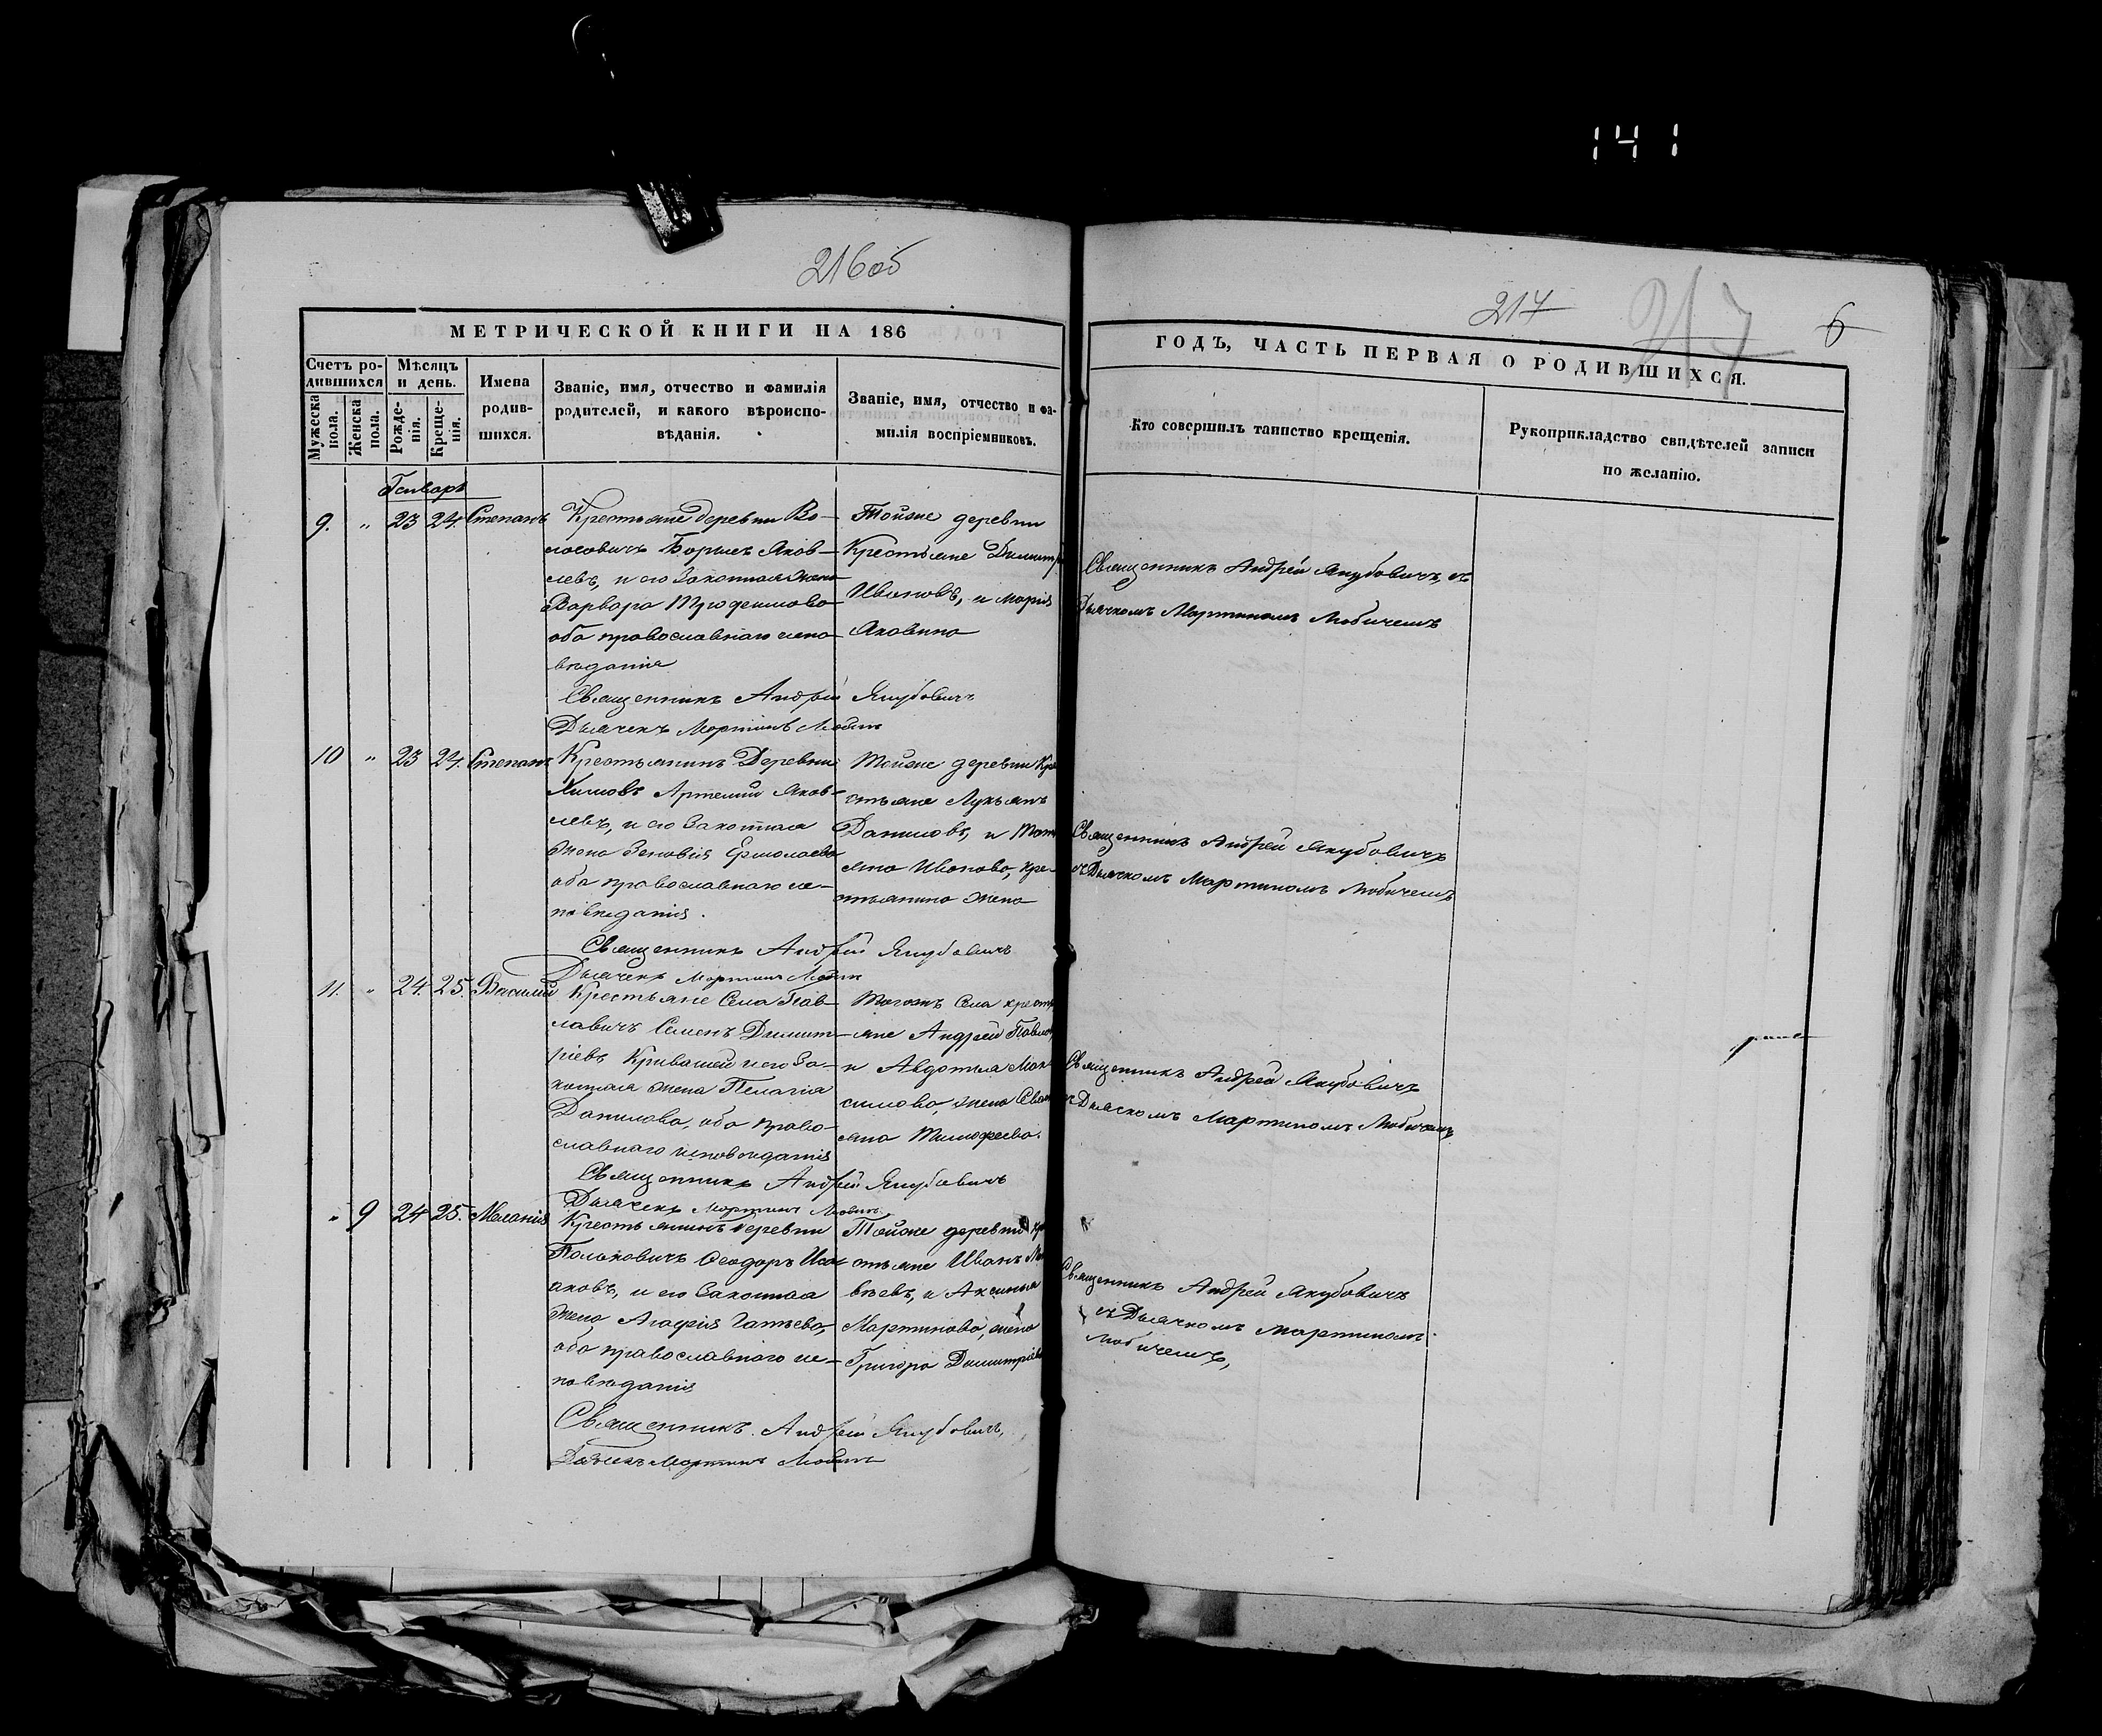 141
216об
217
217
6
МЕТРИЧЕСКОЙ КНИГИ НА 186
ГОДЪ, ЧАСТЬ ПЕРВАЯ О РОДИВШИХСЯ.
Счетъ ро-
дившихся
Мѣсяцъ
и день.
Мужеска
пола.
Женска
пола.
Рожде-
нія.
Креще-
нія.
Имена
родив-
шихся.
Званіе, имя, отчество и фамилія
родителей, и какого вѣроиспо-
вѣданія.
Званіе, имя, отчество и фа-
милія воспріемниковъ.
Кто совершилъ таинство крещенія.
Рукоприкладство свидѣтелей записи
по желанію.
Генварь
9. " 23 24. Степанъ
Крестьяне деревни Во-
лосовичъ Борисъ Яков-
левъ, и его Законная жена
Варвара Трофимова
оба православнаго испо-
вѣданія
Священникъ Андрей Якубовичъ
Дьячекъ Мартинъ
Тойже деревни
Крестьяне Димитр
Ивановъ, и Марія
Яковина
Священникъ Андрей Якубовичъ, съ
Дьячкомъ Мартиномъ Любичемъ
10 " 23 24. Степанъ
Крестьянинъ Деревни
Химовъ Артемий Яков-
левъ, и его Законная
жена Зеновія Ермолаева
оба православнаго ис-
повѣданія.
Священникъ Андрей Якубовичъ
Дьячекъ Мартинъ
Тойже деревни Кре
стьяне Лукьянъ
Даниловъ, и Тать
яна Иванова, кре-
стьянина жена
Священникъ Андрей Якубовичъ
съ Дьячкомъ Мартиномъ Любичемъ
11. " 24. 25. Василій
Крестьяне Села Пав-
лавичъ Семенъ Димит-
ріевъ и его За-
конная жена Пелагія
Данилова, оба право-
славнаго исповѣданія
Священникъ Андрей Якубовичъ
Дьячекъ Мартинъ
Тогожъ Села кресть
яне Андрей Павло
и Авдотья Мак
симова, жена
яна Тимофеева.
Священникъ Андрей Якубовичъ
съ Дьячкомъ Мартиномъ Любичемъ
" 9 24 25. Меланія
Крестьянинъ Деревни
Польковичъ Феодоръ Иса-
аковъ, и его Законная
жена Агафія Игнатьева,
оба православнаго ис-
повѣданія
Священникъ Андрей Якубовичъ,
Дьячекъ Мартинъ
Тойже деревни кре
стьяне Иванъ
вѣевъ, и Аксинья
Мартинова, жена
Григора Димитріева
Священникъ Андрей Якубовичъ
съ Дьячкомъ Мартиномъ
Любичемъ,